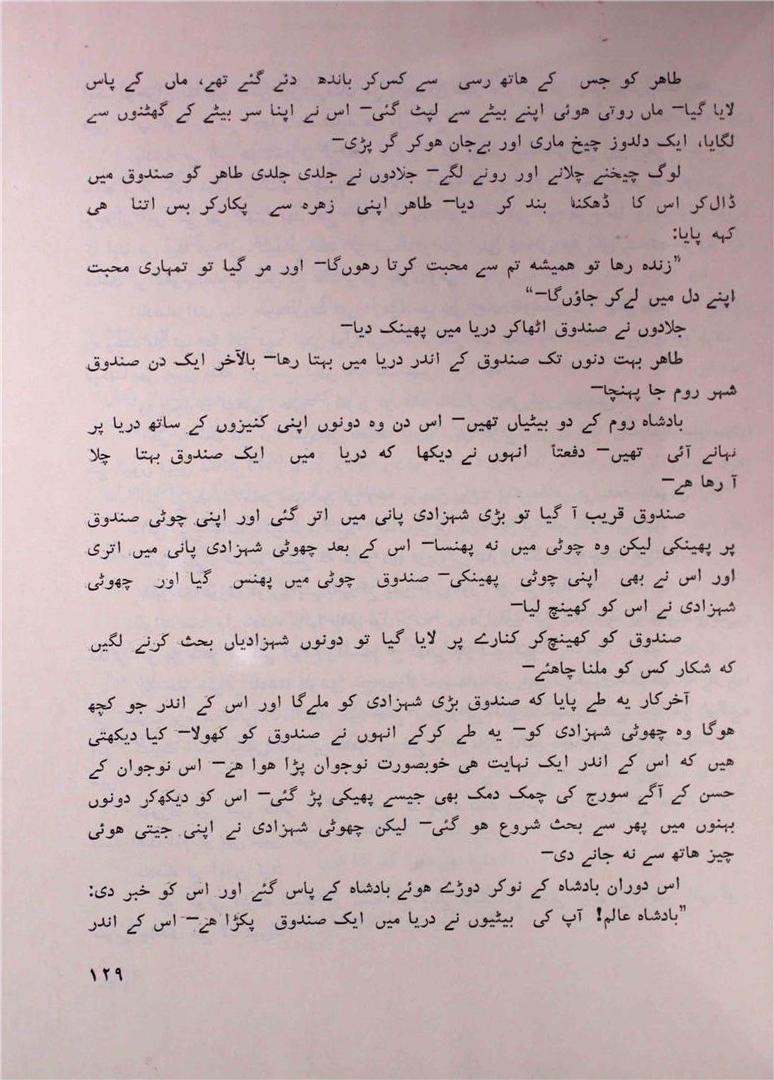 طاهر کو جس کے هاتھ رسی سے کس‌کر باندھ دئے گئے تھے، ماں کے پاس
لایا گیا— ماں روتی هوئی اپنے بیٹے سے لپٹ گئی— اس نے اپنا سر بیٹے کے گھٹنوں سے
لگایا، ایک دلدوز چیخ ماری اور بےجان هوکر گر پڑی—
لوگ چیخنے چلانے اور رونے لگے— جلادوں نے جلدی جلدی طاهر کو صندوق میں
ڈال‌کر اس کا ڈھکنا بند کر دیا— طاهر اپنی زهره سے پکارکر بس اتنا هی
کهه پایا:
”زنده رها تو همیشه تم سے محبت کرتا رهوں‌گا— اور مر گیا تو تمهاری محبت
اپنے دل میں لےکر جاؤں‌گا—“
جلادوں نے صندوق اٹھاکر دریا میں پھینک دیا—
طاهر بهت دنوں تک صندوق کے اندر دریا میں بهتا رها— بالآخر ایک دن صندوق
شهر روم جا پهنچا—
بادشاه روم کے دو بیٹیاں تھیں— اس دن وه دونوں اپنی کنیزوں کے ساتھ دریا پر
نهانے آئی تھیں— دفعتاً انهوں نے دیکھا که دریا میں ایک صندوق بهتا چلا
آ رها هے—
صندوق قریب آ گیا تو بڑی شهزادی پانی میں اتر گئی اور اپنی چوٹی صندوق
پر پھینکی لیکن وه چوٹی میں نه پھنسا— اس کے بعد چھوٹی شهزادی پانی میں اتری
اور اس نے بھی اپنی چوٹی پھینکی— صندوق چوٹی میں پھنس گیا اور چھوٹی
شهزادی نے اس کو کھینچ لیا—
صندوق کو کھینچ‌کر کنارے پر لایا گیا تو دونوں شهزادیاں بحث کرنے لگیں
که شکار کس کو ملنا چاهئے—
آخرکار یه طے پایا که صندوق بڑی شهزادی کو ملےگا اور اس کے اندر جو کچھ
هوگا وه چھوٹی شهزادی کو— یه طے کرکے انهوں نے صندوق کو کھولا— کیا دیکھتی
هیں که اس کے اندر ایک نهایت هی خوبصورت نوجوان پڑا هوا هے— اس نوجوان کے
حسن کے آگے سورج کی چمک دمک بھی جیسے پھیکی پڑ گئی— اس کو دیکھ‌کر دونوں
بهنوں میں پھر سے بحث شروع هو گئی— لیکن چھوٹی شهزادی نے اپنی جیتی هوئی
چیز هاتھ سے نه جانے دی—
اس دوران بادشاه کے نوکر دوڑے هوئے بادشاه کے پاس گئے اور اس کو خبر دی:
”بادشاه عالم! آپ کی بیٹیوں نے دریا میں ایک صندوق پکڑا هے— اس کے اندر
۱۲۹